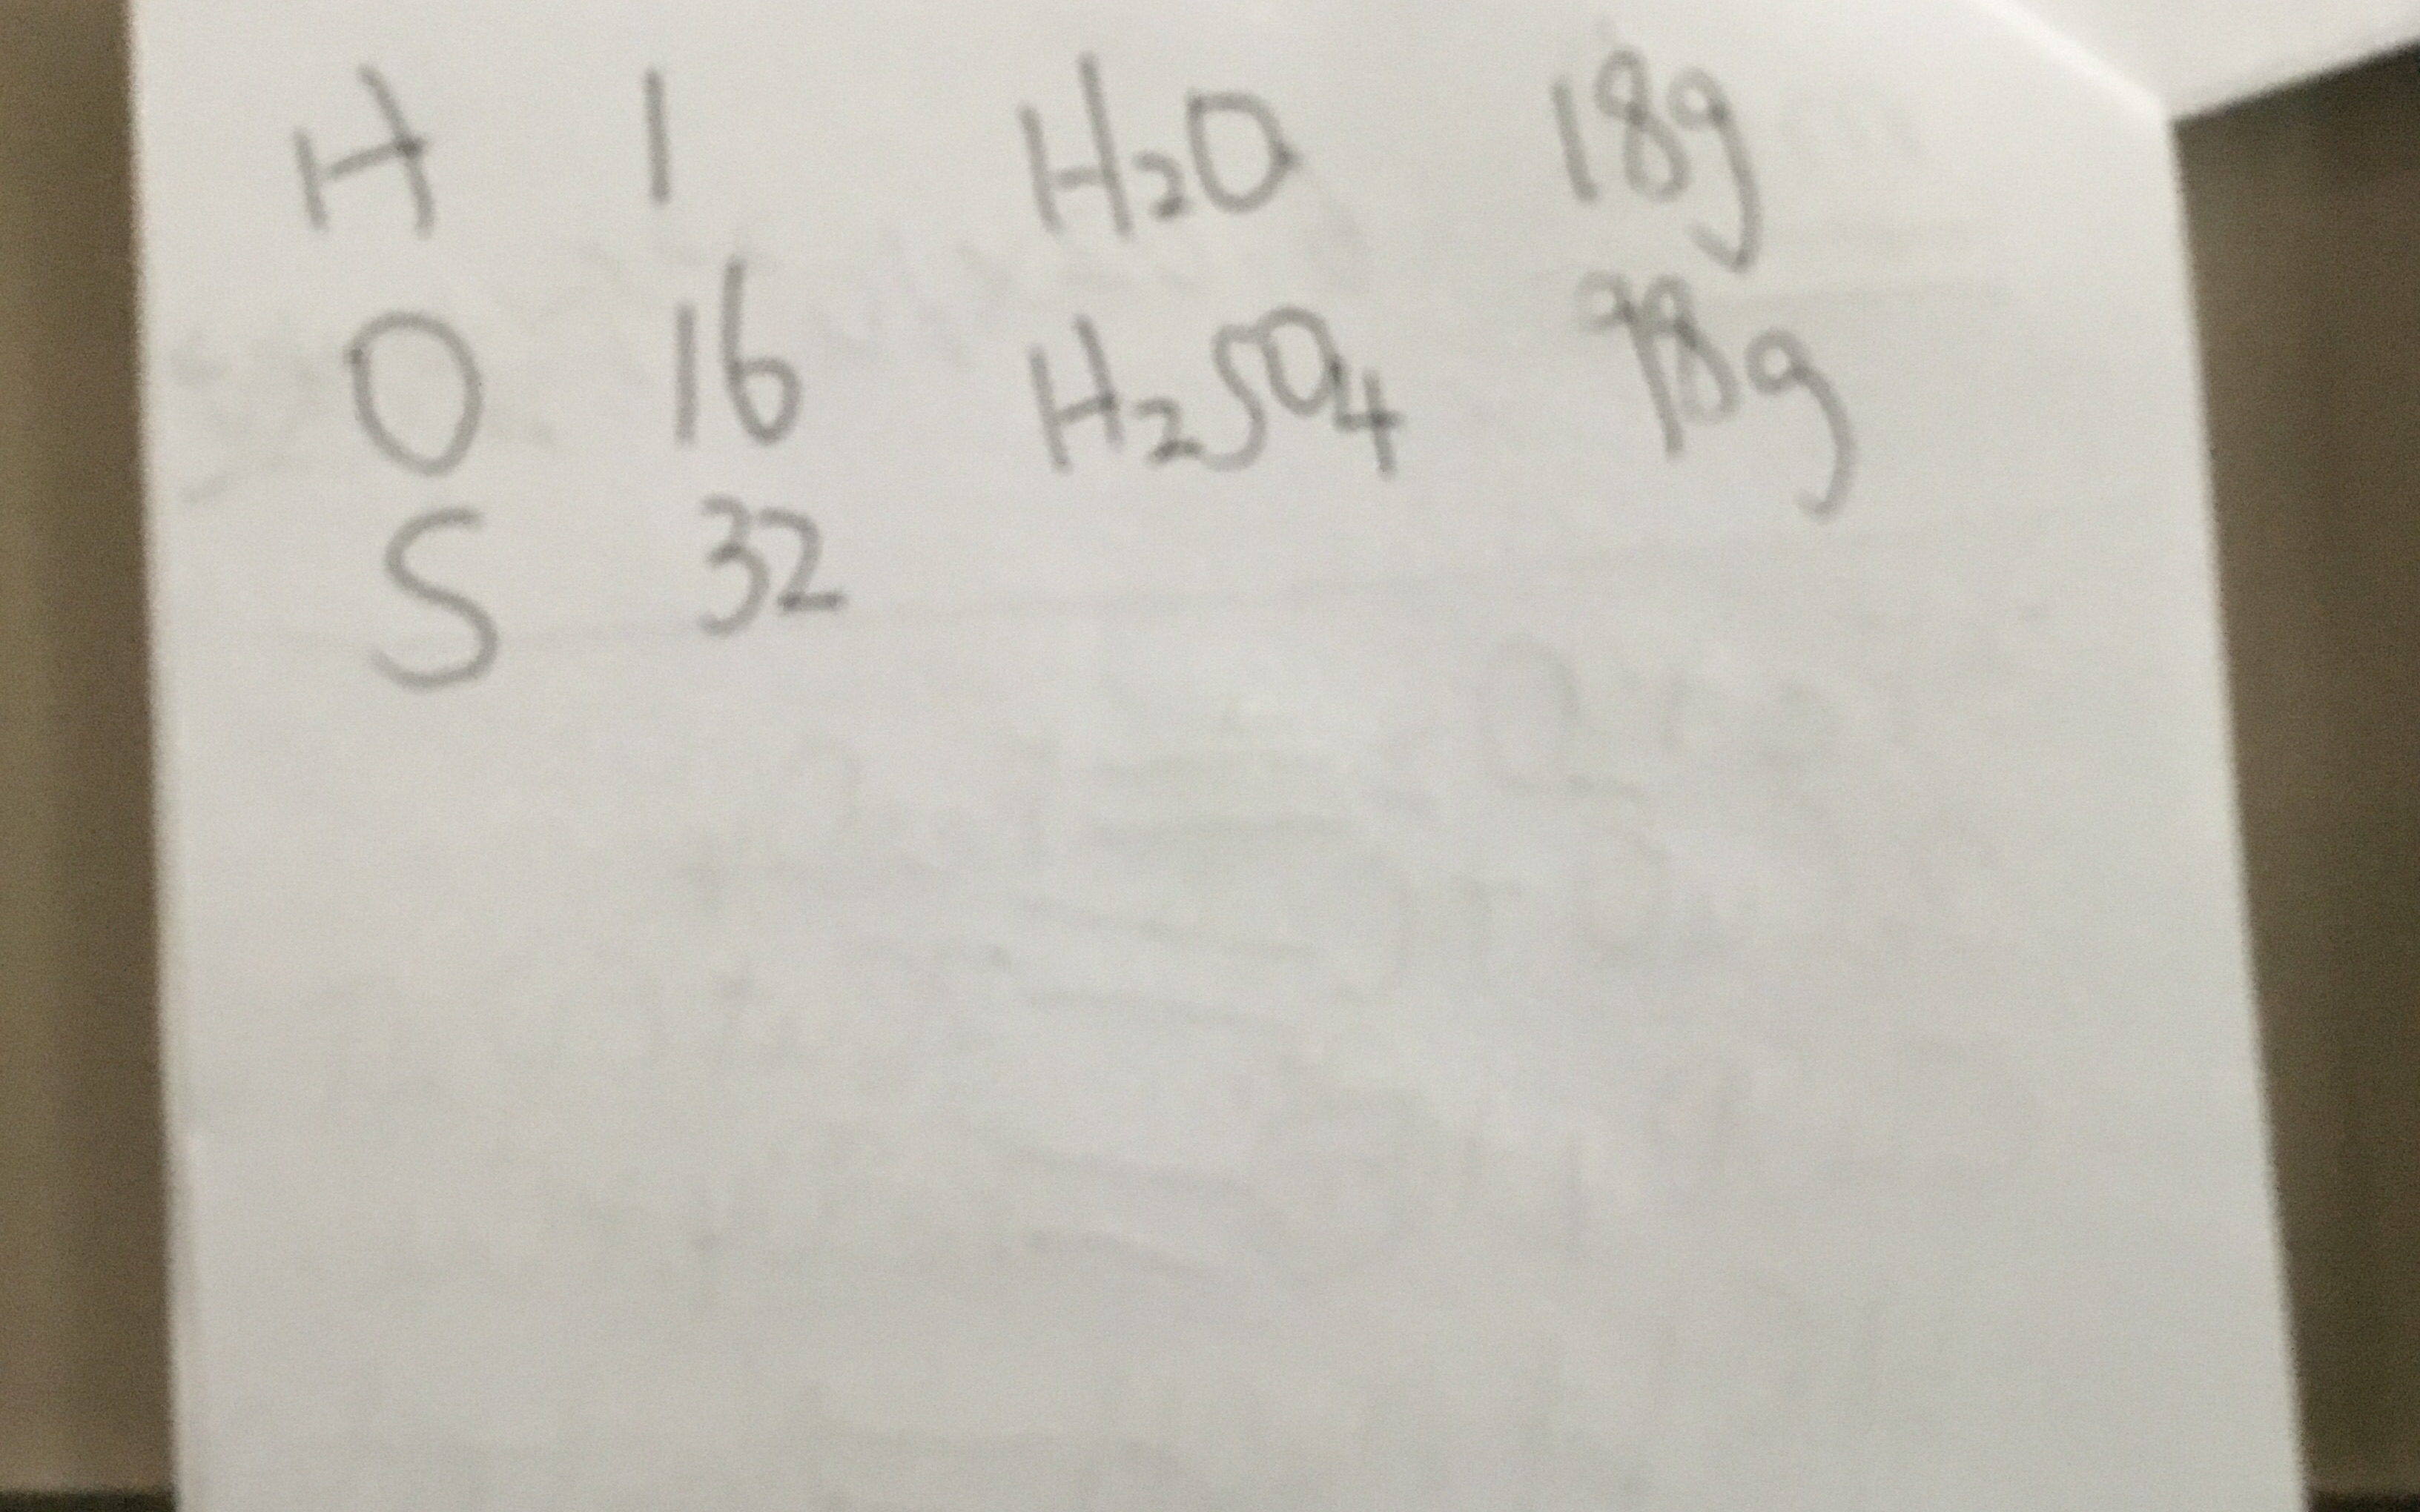 H 1 H₂O 18g
O 16 H₂SO₄ 98g
S 32